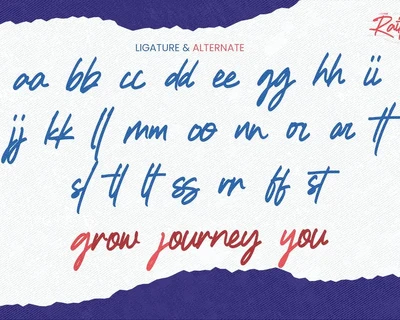 LIGATURE & ALTERNATE
aa bb cc dd ee gg hh ii
jj kk ll mm oo nn or ar tt
sl tl lt ss rr ff st
grow journey you